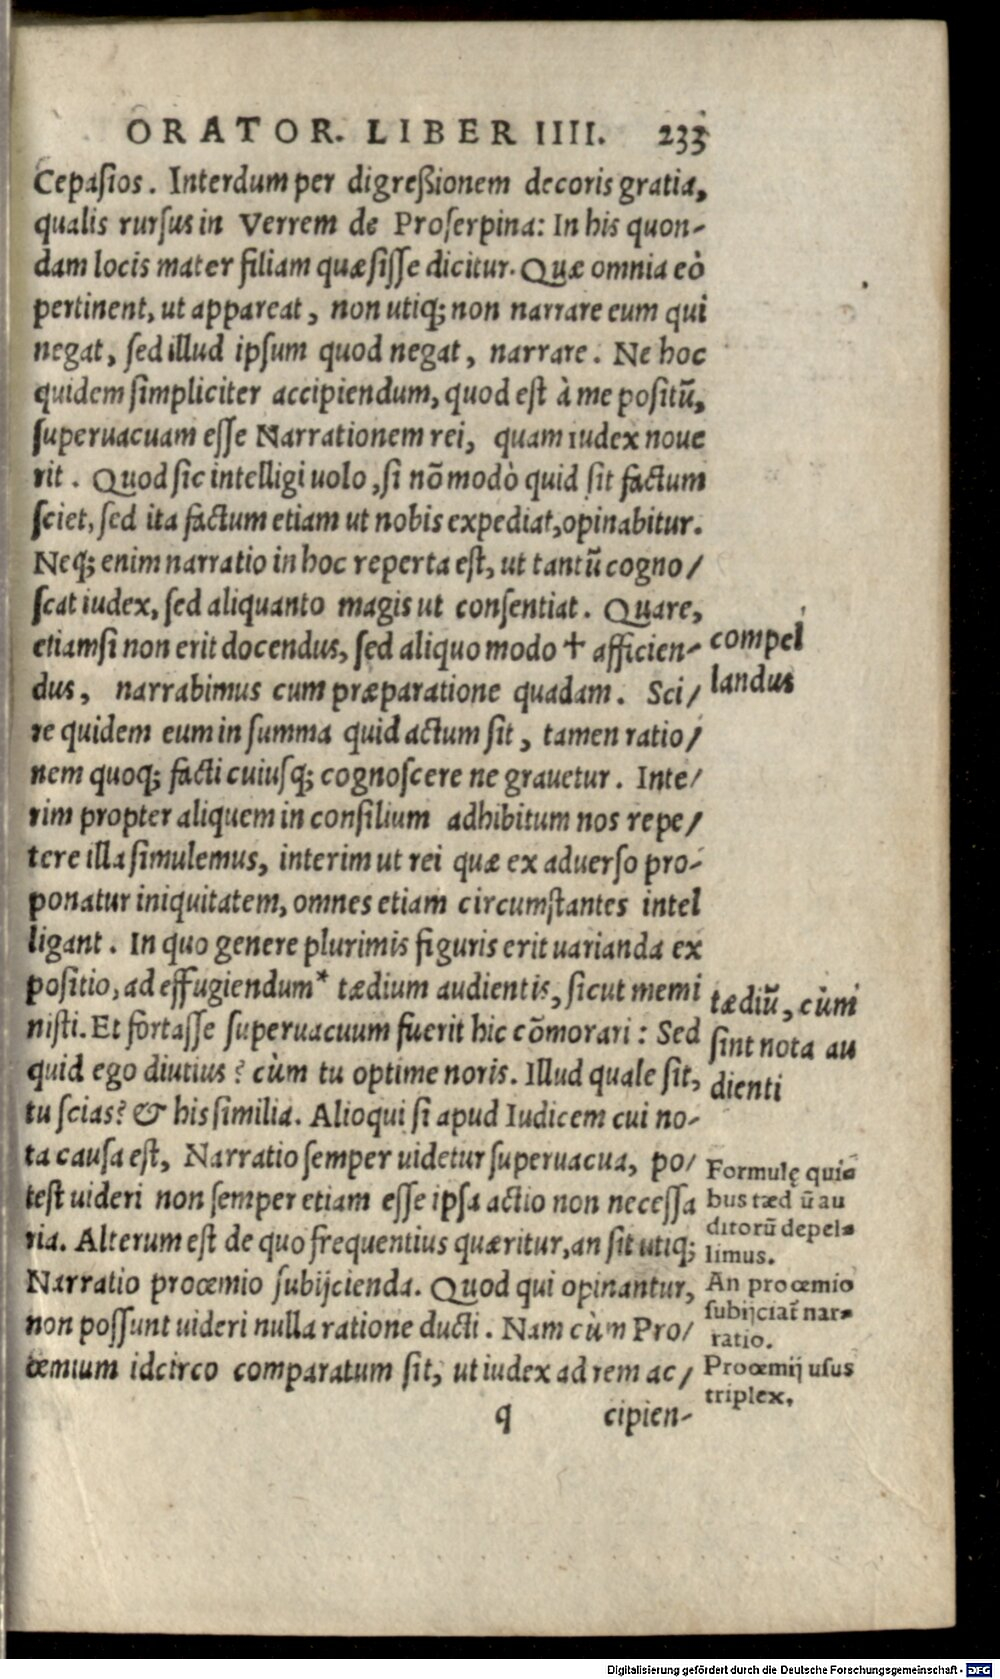 ORATOR. LIBER IIII. 233
Cepasios. Interdum per digreßionem decoris gratia,
qualis rursus in Verrem de Proserpina: In his quon-
dam locis mater filiam quæsisse dicitur. Quæ omnia eò
pertinent, ut appareat, non utiq; non narrare eum qui
negat, sed illud ipsum quod negat, narrare. Ne hoc
quidem simpliciter accipiendum, quod est à me positũ,
superuacuam esse Narrationem rei, quam iudex noue
rit. Quod sic intelligi uolo, si nõ modò quid sit factum
sciet, sed ita factum etiam ut nobis expediat, opinabitur.
Neq; enim narratio in hoc reperta est, ut tantũ cogno/
scat iudex, sed aliquanto magis ut consentiat. Quare,
etiamsi non erit docendus, sed aliquo modo + afficien-
dus, narrabimus cum præparatione quadam. Sci/
re quidem eum in summa quid actum sit, tamen ratio/
nem quoq; facti cuiusq; cognoscere ne grauetur. Inte/
rim propter aliquem in consilium adhibitum nos repe/
tere illa simulemus, interim ut rei quæ ex aduerso pro-
ponatur iniquitatem, omnes etiam circumstantes intel
ligant. In quo genere plurimis figuris erit uarianda ex
positio, ad effugiendum* tædium audientis, sicut memi
nisti. Et fortasse superuacuum fuerit hic cõmorari: Sed
quid ego diutius? cùm tu optime noris. Illud quale sit,
tu scias? & his similia. Alioqui si apud Iudicem cui no-
ta causa est, Narratio semper uidetur superuacua, po/
test uideri non semper etiam esse ipsa actio non necessa
ria. Alterum est de quo frequentius quæritur, an sit utiq;
Narratio proœmio subijcienda. Quod qui opinantur,
non possunt uideri nulla ratione ducti. Nam cùm Pro/
œmium idcirco comparatum sit, ut iudex ad rem ac/
q cipien-
compel
landus
tædiũ, cùm
sint nota au
dienti
Formulę qui-
bus tæd ũ au
ditorũ depel-
limus.
An proœmio
subijciat̃ nar-
ratio.
Proœmij usus
triplex.
Digitalisierung gefördert durch die Deutsche Forschungsgemeinschaft - DFG